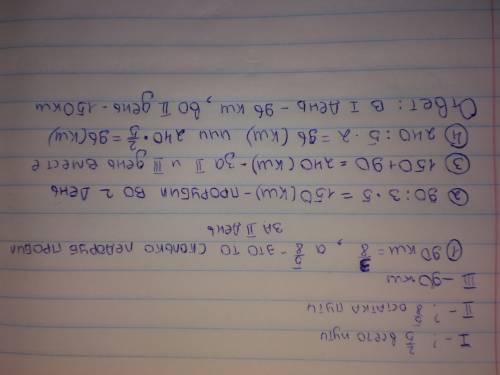 I - ? 2/5 всего пути
II - ? 5/8 остатка пути
III - 90 км
① 90 км = 3/8, а 5/8 - это то сколько ледоруб пробил
за II день
② 90 : 3 · 5 = 150 (км) - прорубил во 2 день
③ 150 + 90 = 240 (км) - за II и III день вместе
④ 240 : 5 · 2 = 96 (км) или 240 · 2/5 = 96 (км)
Ответ: в I день - 96 км, во II день - 150 км